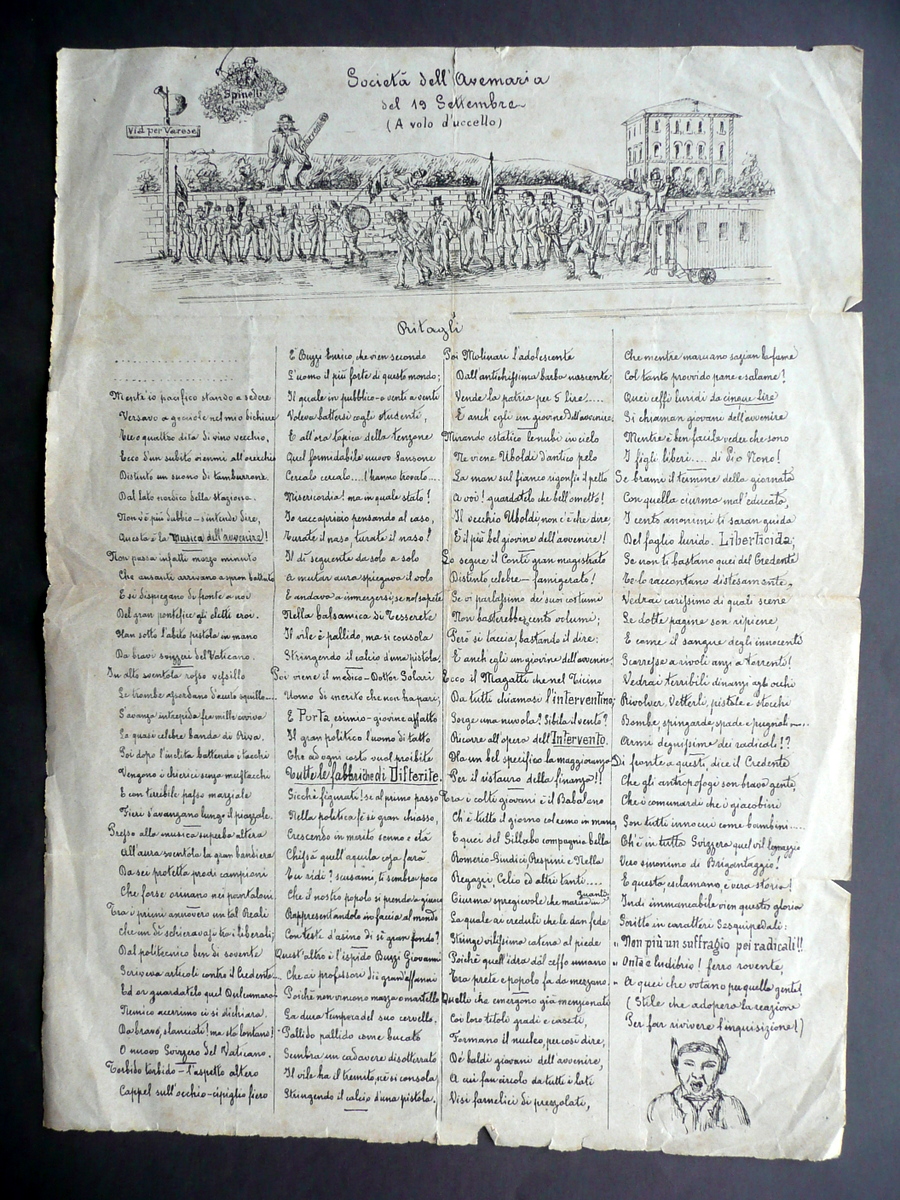 Società dell'Avemaria
del 19 Settembre
(A volo d'uccello)
Spinelli
Via per Varese
Ritagli
Mente io pacifico stando a sedere
Versavo a gocciole nel mio bichiere
Tre o quattro dita di vino vecchio,
Ecco d'un subito vienmi all'orecchio
Distinto un suono di tamburrone.
Dal lato nordico della stazione.
Non v'è più dubbio – s'intende dire,
Questa è la Musica dell'avvenire!
Non passa infatti mezzo minuto
Che ansanti arrivano a spron battuto
E si dispiegano di fronte a noi
Del gran pontefice gli eletti eroi.
Han sotto l'abito pistola in mano
Da bravi svizzeri del Vaticano.
In alto sventola rosso vessillo
Le trombe assordano d'acuto squillo
S'avanza intrepida fra mille evviva
La quasi celebre banda di Riva.
Poi dopo l'inclita battendo i tacchi
Vengono i chierici senza mustacchi
E con terribile passo marziale
Fieri s'avanzano lungo il piazzale.
Presso alla musica superba altera
All'aura sventola la gran bandiera
Da sei protetta prodi campioni
Che forse orinano nei pantaloni.
Tra i primi annovero un tal Reali
Che un dì schieravasi tra i liberali;
Dal politecnico ben di sovente
Scriveva articoli contro il Credente
Ed or guardatelo quel Dulcamara
Nemico acerrimo ci si dichiara.
Da bravo, slanciati! ma sta lontano!
O nuovo Svizzero del Vaticano.
Torbido torbido – l'aspetto altero
Cappel sull'occhio – cipiglio fiero
E' Buzzi Enrico, che vien secondo
L'uomo il più forte di questo mondo;
Il quale in pubblico – a venti a venti
Voleva battersi cogli studenti,
E all'ora topica della tenzone
Quel formidabile nuovo Sansone
Cercalo cercalo.... l'hanno trovato....
Misericordia! ma in quale stato!
Io raccapriccio pensando al caso,
Turate il naso, turate il naso!
Il dì seguente da solo a solo
A mutar aura spiegava il volo
E andava a immergersi, se nol sapete
Nella balsamica di Tesserete
Il vile è pallido, ma si consola
Stringendo il calcio d'una pistola.
Poi viene il medico – Dottor Solari
Uomo di merito che non ha pari,
E Porta, esimio – giovine affatto
Il gran politico l'uomo di tatto
Che ad ogni costo vuol proibite
Tutte le fabbriche di Difterite.
Sicchè figurati! se al primo passo
Nella politica fe' si gran chiasso,
Crescendo in merito senno e età
Chissà quell'aquila cosa farà
Tu ridi? scusami, ti sembra poco
Che il nostro popolo si prenda a giuoco
Rappresentandolo in faccia al mondo
Con teste d'asino di sì gran fondo?
Quest'altro è l'ispido Buzzi Giovanni
Che ai professori diè grand'affanni
Poichè non vincono mazza o martello
La dura tempera del suo cervello.
Pallido pallido come bucato
Sembra un cadavere disotterrato
Il vile ha il tremito, nè si consola,
Stringendo il calcio d'una pistola.
Poi Molinari l'adolescente
Dall'antichissima barba nascente;
Vende la patria per 5 lire....
E' anch'egli un giovine dell'avvenire,
Mirando estatico le nubi in cielo
Ne viene Uboldi d'antico pelo
La man sul fianco rigonfi il petto
A voi! guardatelo che bell'ometto!
Il vecchio Uboldi, non c'è che dire,
E' il più bel giovine dell'avvenire!
Lo segue il Conti gran magistrato
Distinto celebre – famigerato!
Se vi parlassimo de' suoi costumi
Non basterebber cento volumi;
Però si taccia, bastando il dire;
E' anch'egli un giovine dell'avvenire.
Ecco il Magatti che nel Ticino
Da tutti chiamasi l'interventino;
Sorge una nuvola? Sibila il vento?
Ricorre all'opera dell'Intervento.
Ma un bel specifico la maggioranza
Per il ristauro della finanza!!
Tra i colti giovani è il Baballano
Ch'è tutto il giorno col remo in mano,
E quei del Sillabo compagnia bella
Romerio – Giudici Respini e Nella
Regazzi, Celio ed altri tanti....
Ciurma spregievole che marcia in guanti
La quale ai creduli che le dan fede
Stringe vilissima catena al piede
Poichè quell'idra dal ceffo umano
Tra prete e popolo fa da mezzano
Quello che emergono già menzionati
Coi loro titoli gradi e casati,
Formano il nucleo, per così dire,
De' baldi giovani dell'avvenire,
A cui fan circolo da tutti i lati
Visi famelici di prezzolati,
Che mentre marciano sazian la fame
Col tanto provvido pane e salame!
Quei ceffi luridi da cinque lire
Si chiaman giovani dell'avvenire
Mentre è ben facile veder che sono
I figli liberi.... di Pio Nono!
Se brami il termine della giornata
Con quella ciurma mal'educata,
I cento anonimi ti saran guida
Del foglio lurido. Liberticida;
Se non ti bastano quei del Credente
Te lo raccontano distesamente.
Vedrai carissimo di quali scene
Le dotte pagine son ripiene,
E come il sangue degli innocenti
Scorresse a rivoli anzi a torrenti!
Vedrai terribili dinanzi agli occhi
Rivolver, Vetterli, pistole e stocchi
Bombe, spingarde, spade e pugnali....
Armi degnissime dei radicali!?
Di fronte a questi, dice il Credente
Che gli antropofogi son brava gente,
Che i comunardi che i giacobini
Son tutti innocui come bambini....
Ch'è in tutta Svizzera quel vil lomazzo
Vero sinonimo di Brigantaggio!
E questa esclamano, è vera storia!
Indi immancabile vien questa gloria
Scritto in caratteri Sesquipedali:
" Non più un suffragio pei radicali!!
" Onta e ludibrio! ferro rovente,
" A quei che votano per quella gente!
( Stile che adopera la reazione
Per far rivivere l'inquisizione!)